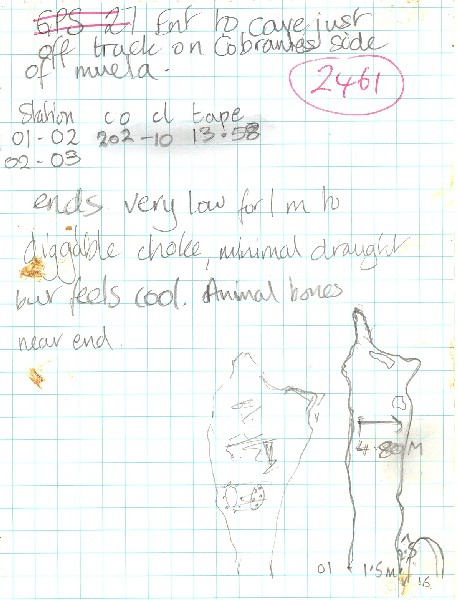 GPS 27 Ent to cave just
off track on Cobrantes side
of muela.
2461
Station co cl tape
01-02 202 -10 13.58
02-03
ends very low for 1 m to
diggable choke, minimal draught
but feels cool. Animal bones
near end.
4.80M
01 1.5M